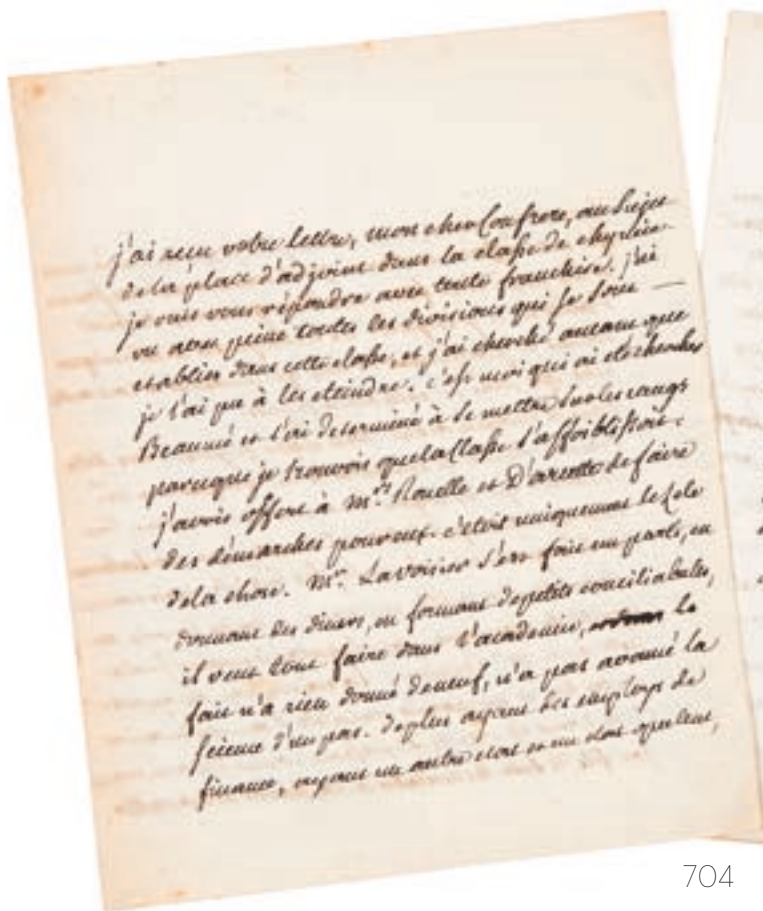 j'ai recu votre lettre, mon cher Confrere, au Sujet
de la place d'adjoint dans la classe de chymie.
je vais vous répondre avec toute franchise. j'ai
vu avec peine toutes les divisions qui se sont —
etablies dans cette classe, et j'ai cherché autant que
je l'ai pu à les eteindre. c'est moi qui ai eté chercher
Beaumé et l'ai determiné à se mettre sur les rangs
parceque je trouvois que la Classe s'affoiblissoit.
j'avois offert à Mrs. Rouelle et D'arcet de faire
des démarches pour eux. c'etoit uniquement le Zele
de la chose. Mr. Lavoisier s'est fait un parti, en
donnant des diners, en formant de petits conciliabules,
il veut tout faire dans l'academie, le
fait n'a rien donné de neuf, n'a pas avancé la
science d'un pas. de plus ayant des emplois de
finance, ayant un autre etat et un etat opulent,
704